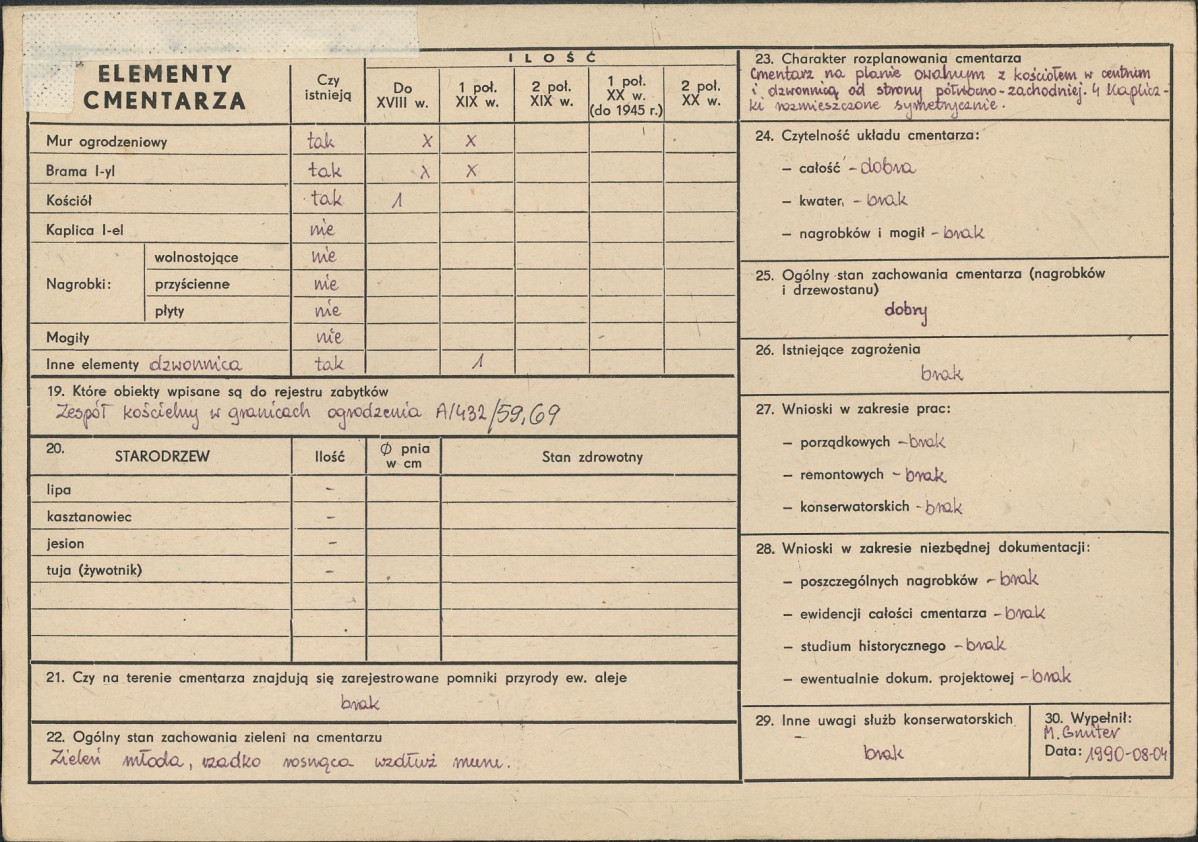 ELEMENTY
CMENTARZA
Czy
istnieją
ILOŚĆ
Do
XVIII w.
1 poł.
XIX w.
2 poł.
XIX w.
1 poł.
XX w.
(do 1945 r.)
2 poł.
XX w.
Mur ogrodzeniowy tak x x
Brama I-yl tak x x
Kościół tak 1
Kaplica I-el nie
Nagrobki:
wolnostojące nie
przyścienne nie
płyty nie
Mogiły nie
Inne elementy dzwonnica tak 1
19. Które obiekty wpisane są do rejestru zabytków
Zespół kościelny w granicach ogrodzenia A/432/59,69
20. STARODRZEW Ilość Ø pnia
w cm
Stan zdrowotny
lipa -
kasztanowiec -
jesion -
tuja (żywotnik) -
21. Czy na terenie cmentarza znajdują się zarejestrowane pomniki przyrody ew. aleje
brak
22. Ogólny stan zachowania zieleni na cmentarzu
Zieleń młoda, rzadko rosnąca wzdłuż muru.
23. Charakter rozplanowania cmentarza
Cmentarz na planie owalnym z kościołem w centrum
i dzwonnicą od strony północno-zachodniej. 4 Kaplicz-
ki rozmieszczone symetrycznie.
24. Czytelność układu cmentarza:
– całość - dobra
– kwater, - brak
– nagrobków i mogił - brak
25. Ogólny stan zachowania cmentarza (nagrobków
i drzewostanu)
dobry
26. Istniejące zagrożenia
brak
27. Wnioski w zakresie prac:
– porządkowych - brak
– remontowych - brak
– konserwatorskich - brak
28. Wnioski w zakresie niezbędnej dokumentacji:
– poszczególnych nagrobków - brak
– ewidencji całości cmentarza - brak
– studium historycznego - brak
– ewentualnie dokum. projektowej - brak
29. Inne uwagi służb konserwatorskich
brak
30. Wypełnił:
M.
Data: 1990-08-04